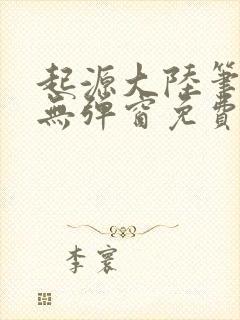 起源大陸筆
無彈窗免費
李寰